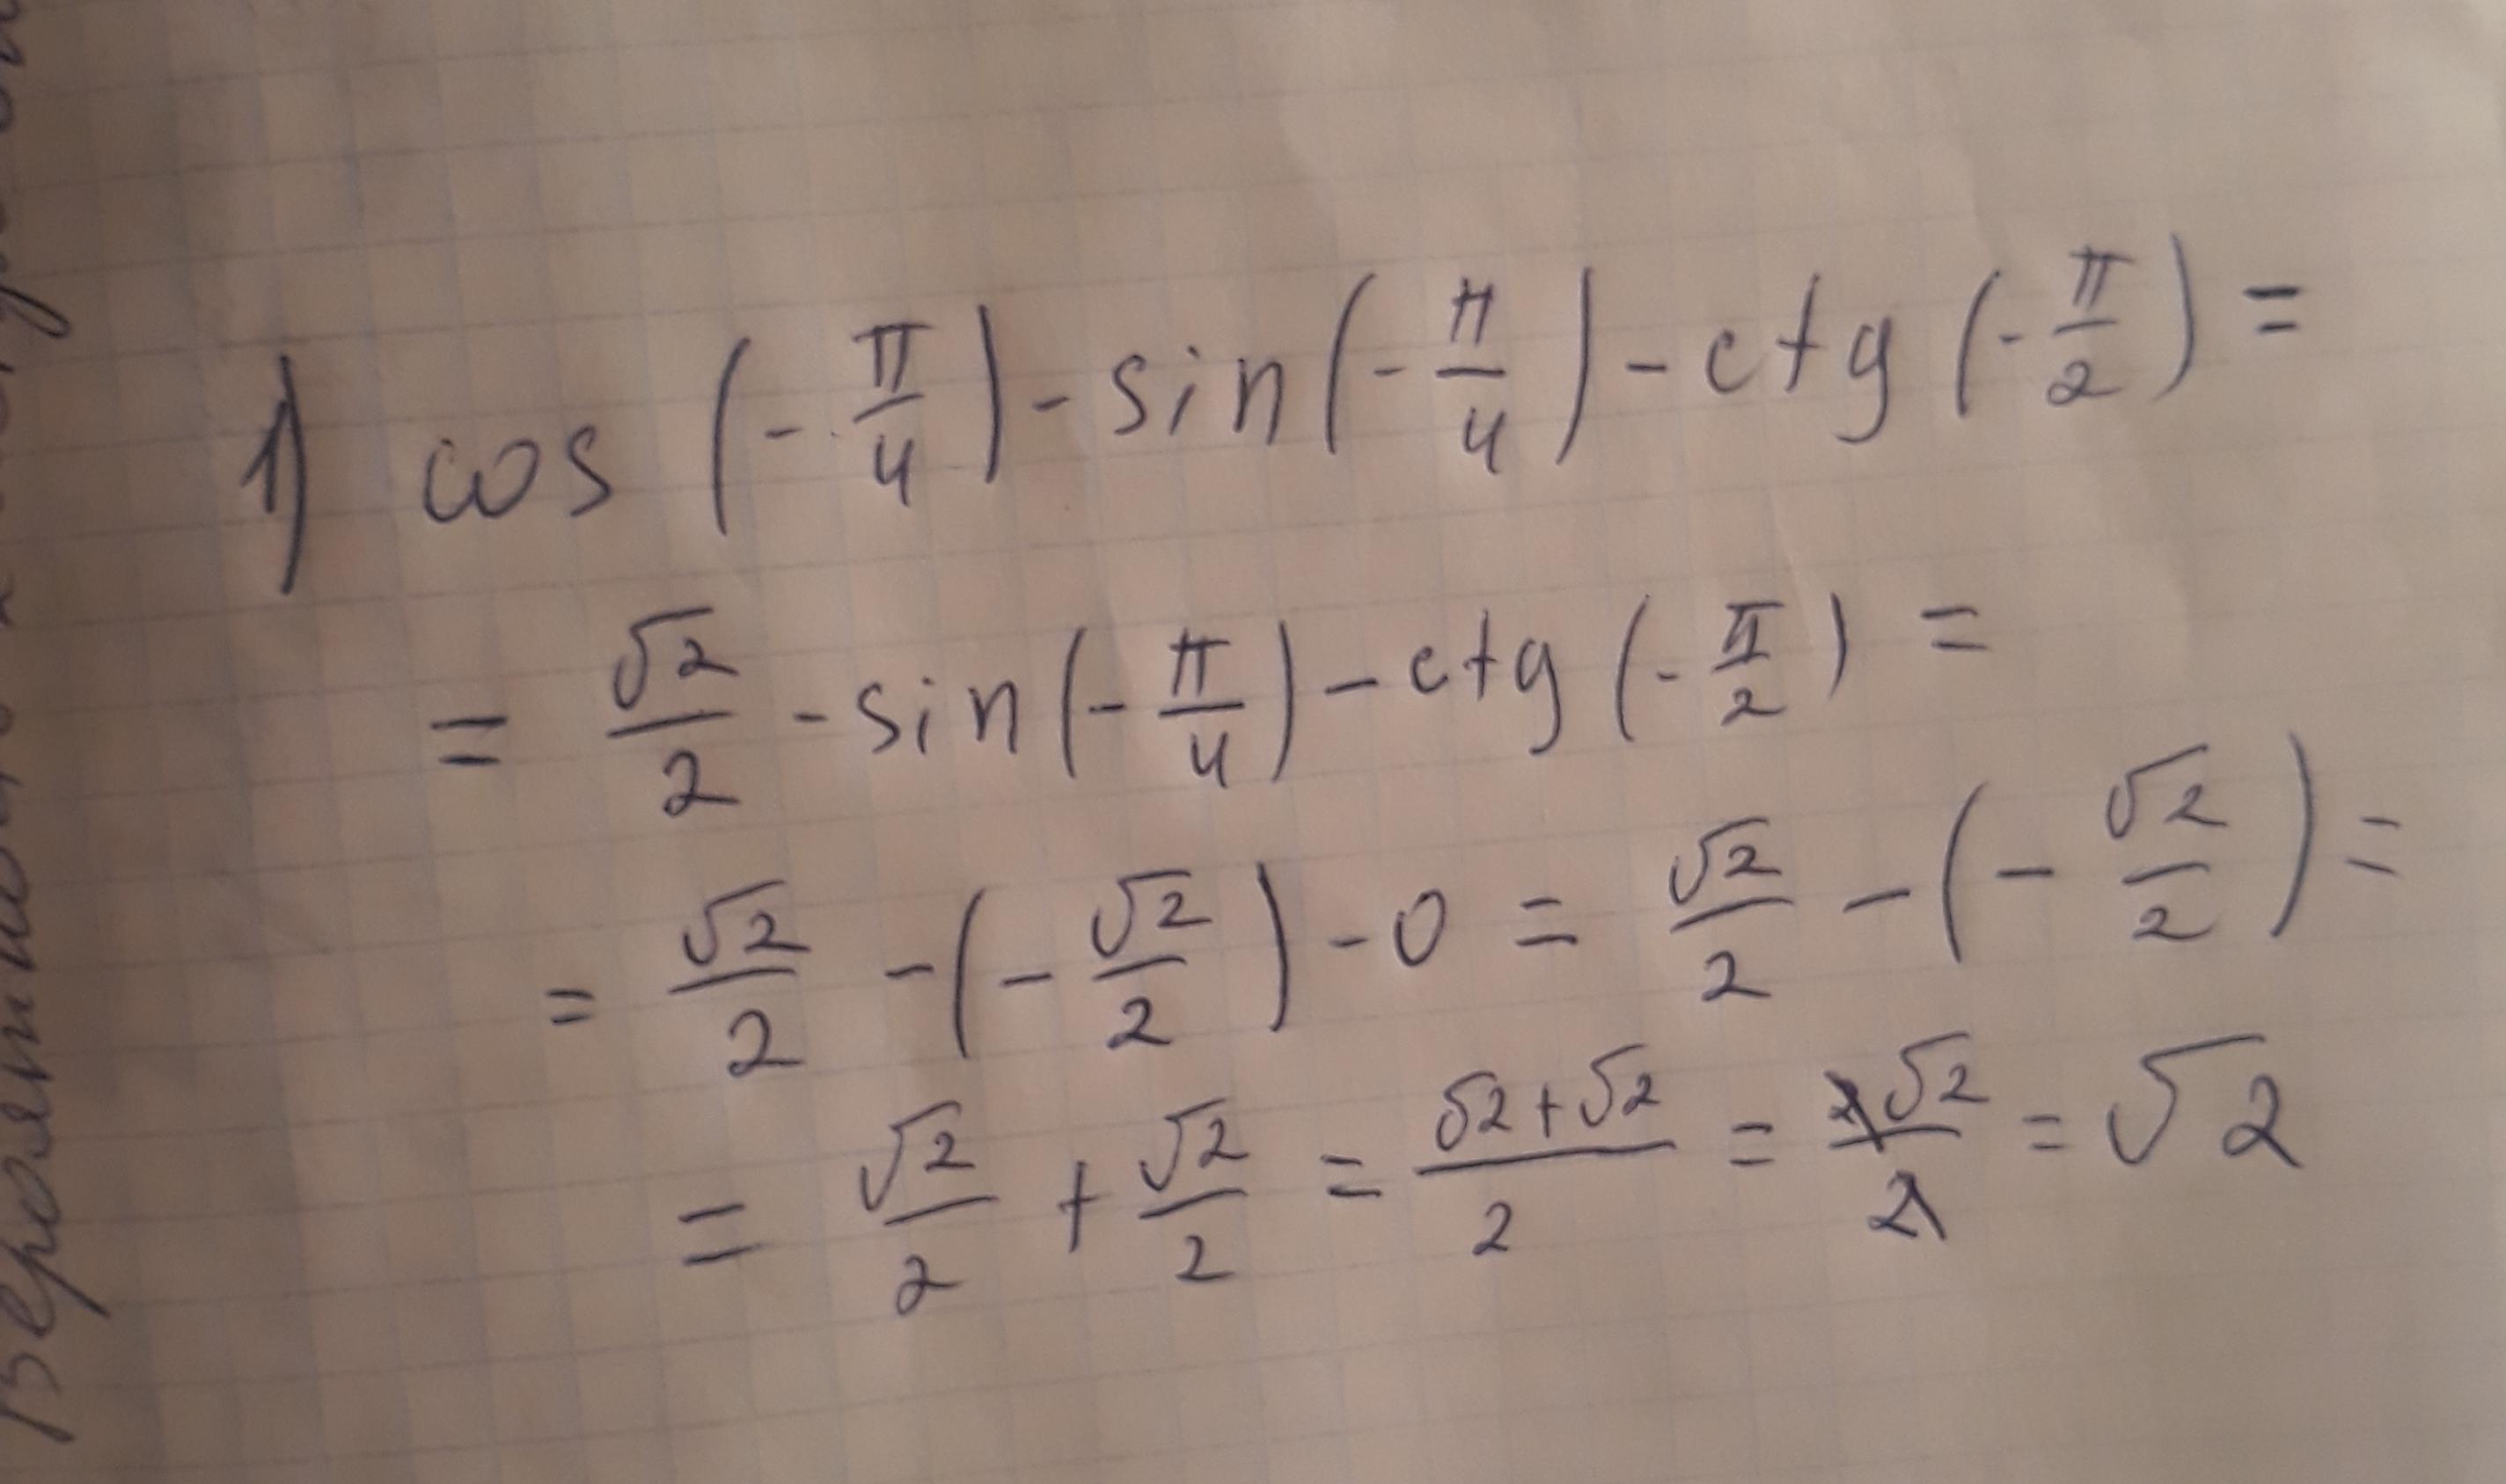 1) cos (-π/4) - sin(-π/4) - ctg(-π/2) =
= √2/2 - sin(-π/4) - ctg(-π/2) =
= √2/2 - (-√2/2) - 0 = √2/2 - (-√2/2) =
= √2/2 + √2/2 = (√2+√2)/2 = 2√2/2 = √2